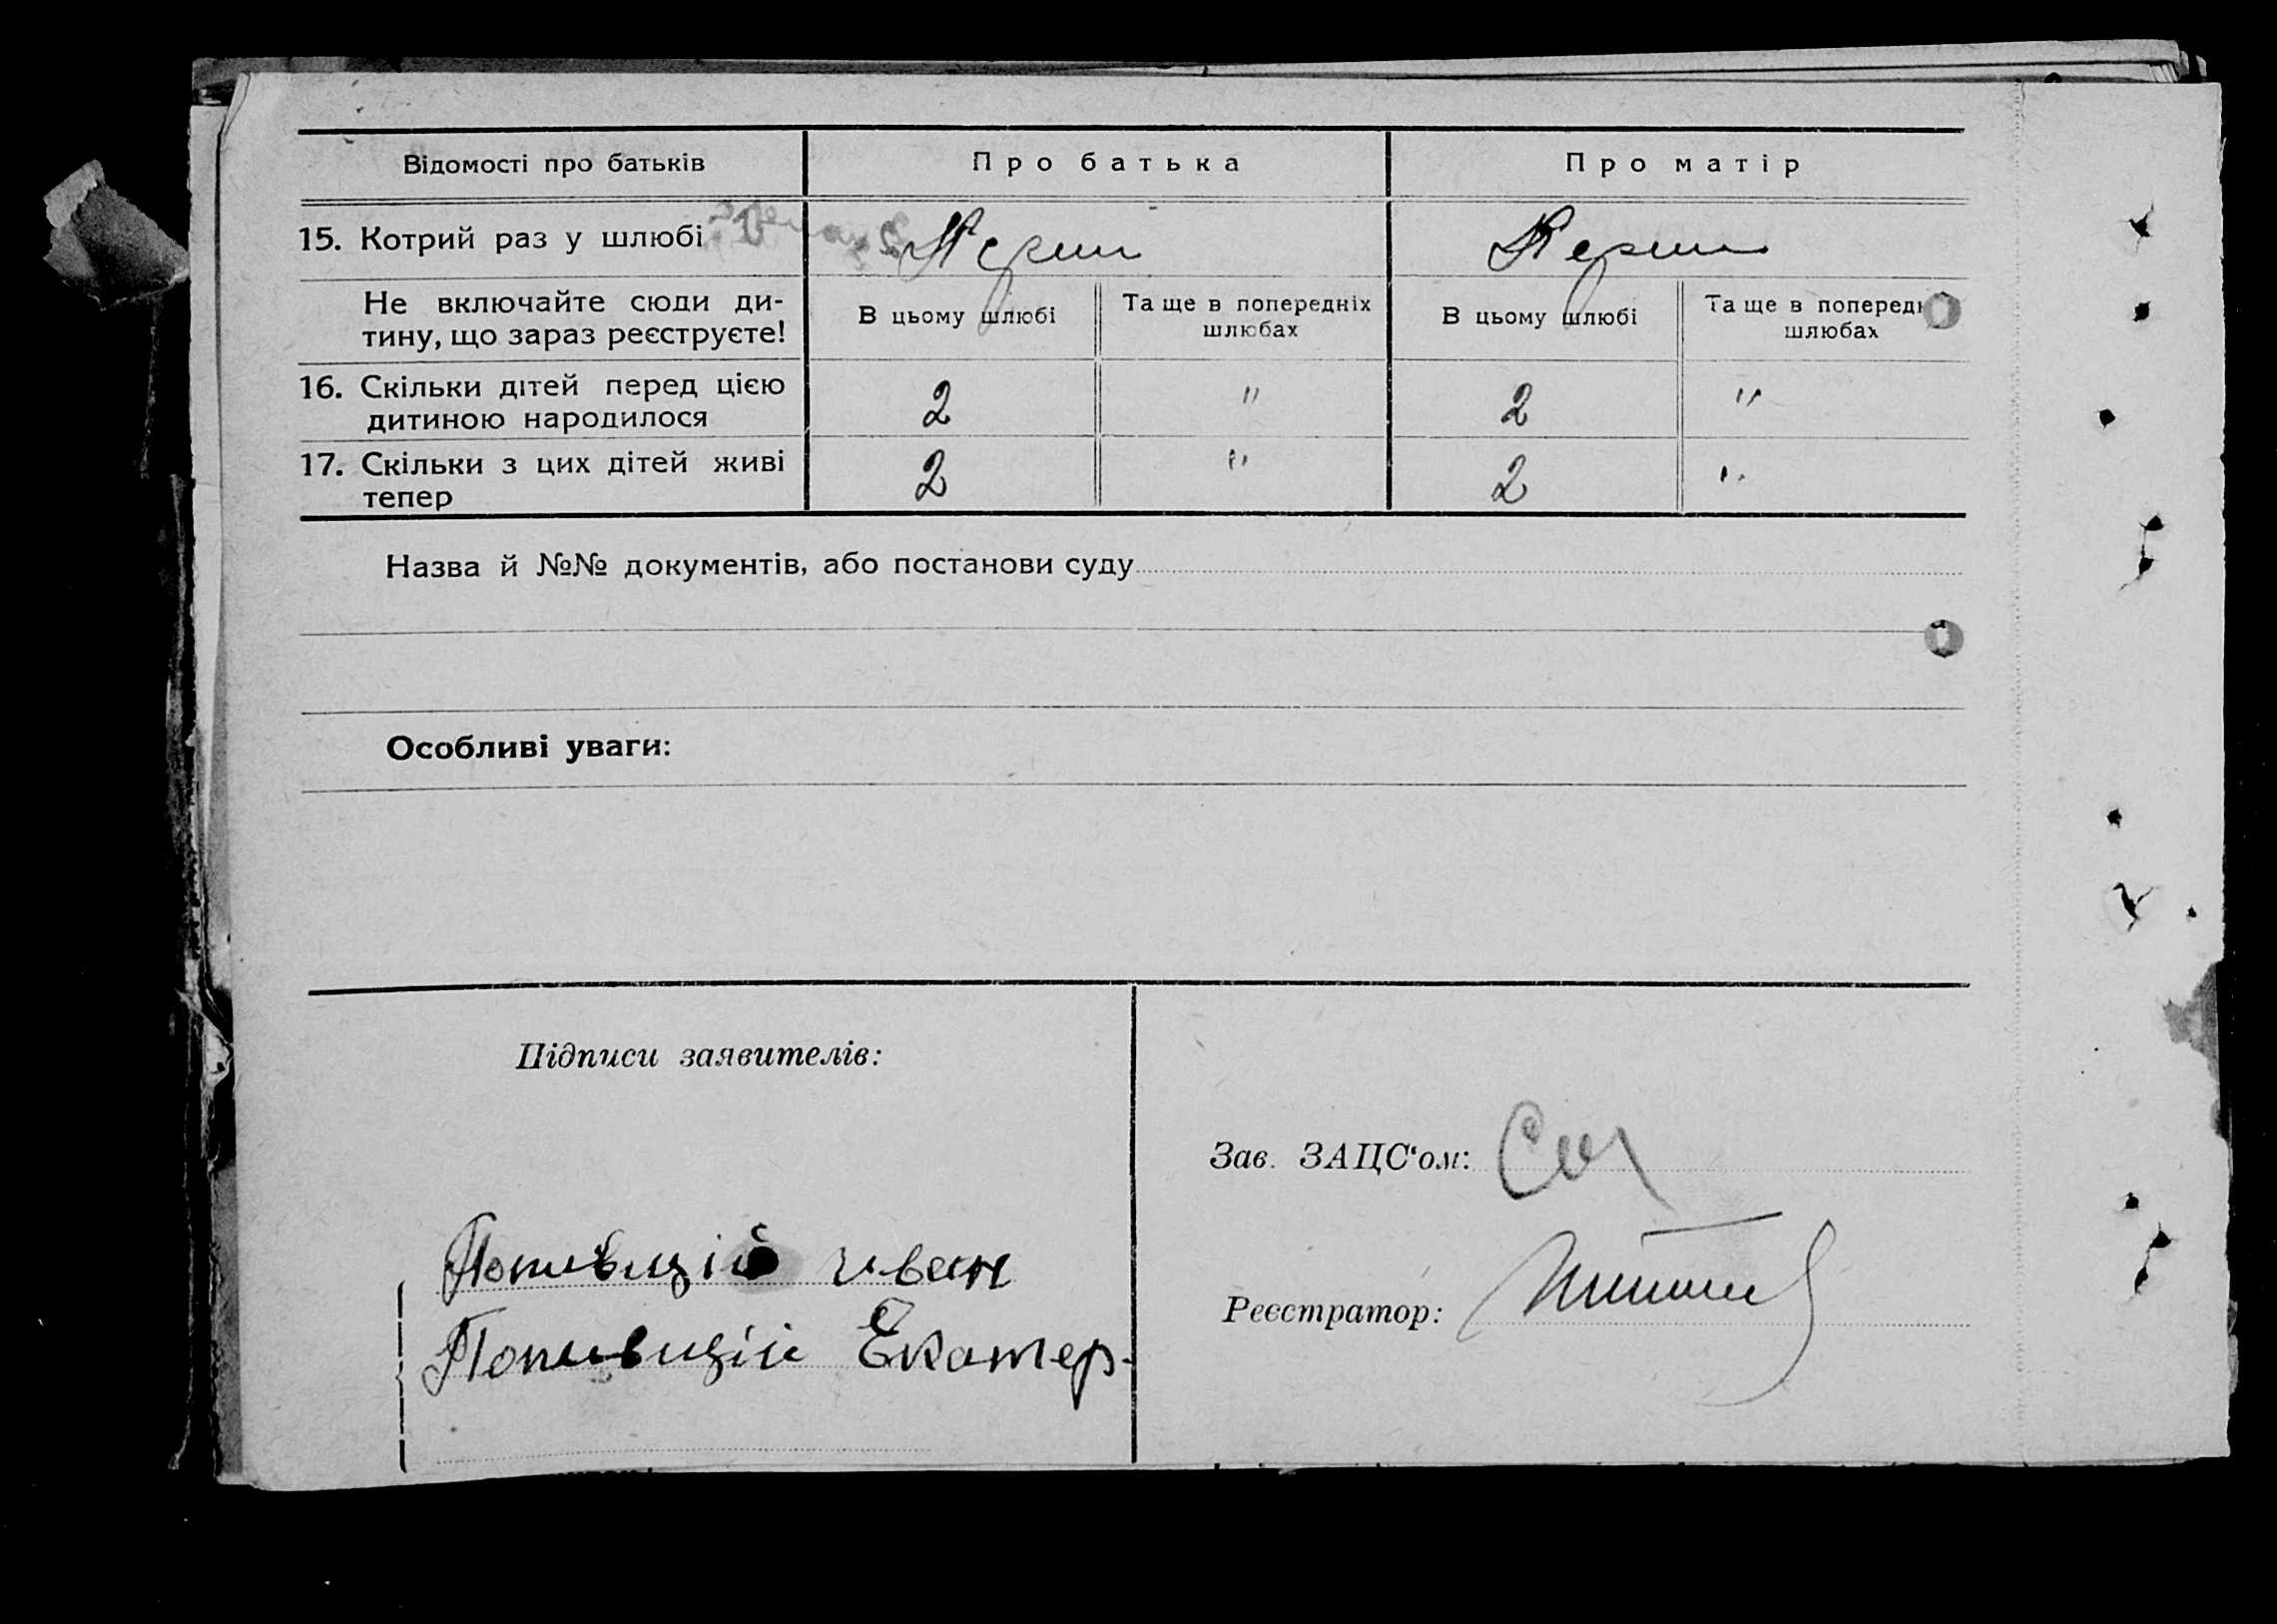 Відомості про батьків
Про батька
Про матір
15. Котрий раз у шлюбі
Перш
Перш
Не включайте сюди ди-
тину, що зараз реєструєте!
В цьому шлюбі
Та ще в попередніх
шлюбах
В цьому шлюбі
Та ще в поперед
шлюбах
16. Скільки дітей перед цією
дитиною народилося
2
"
2
"
17. Скільки з цих дітей живі
тепер
2
"
2
"
Назва й №№ документів, або постанови суду
Особливі уваги:
Підписи заявителів:
Зав. ЗАЦС‘ом:
Реєстратор:
иван
Екатер.